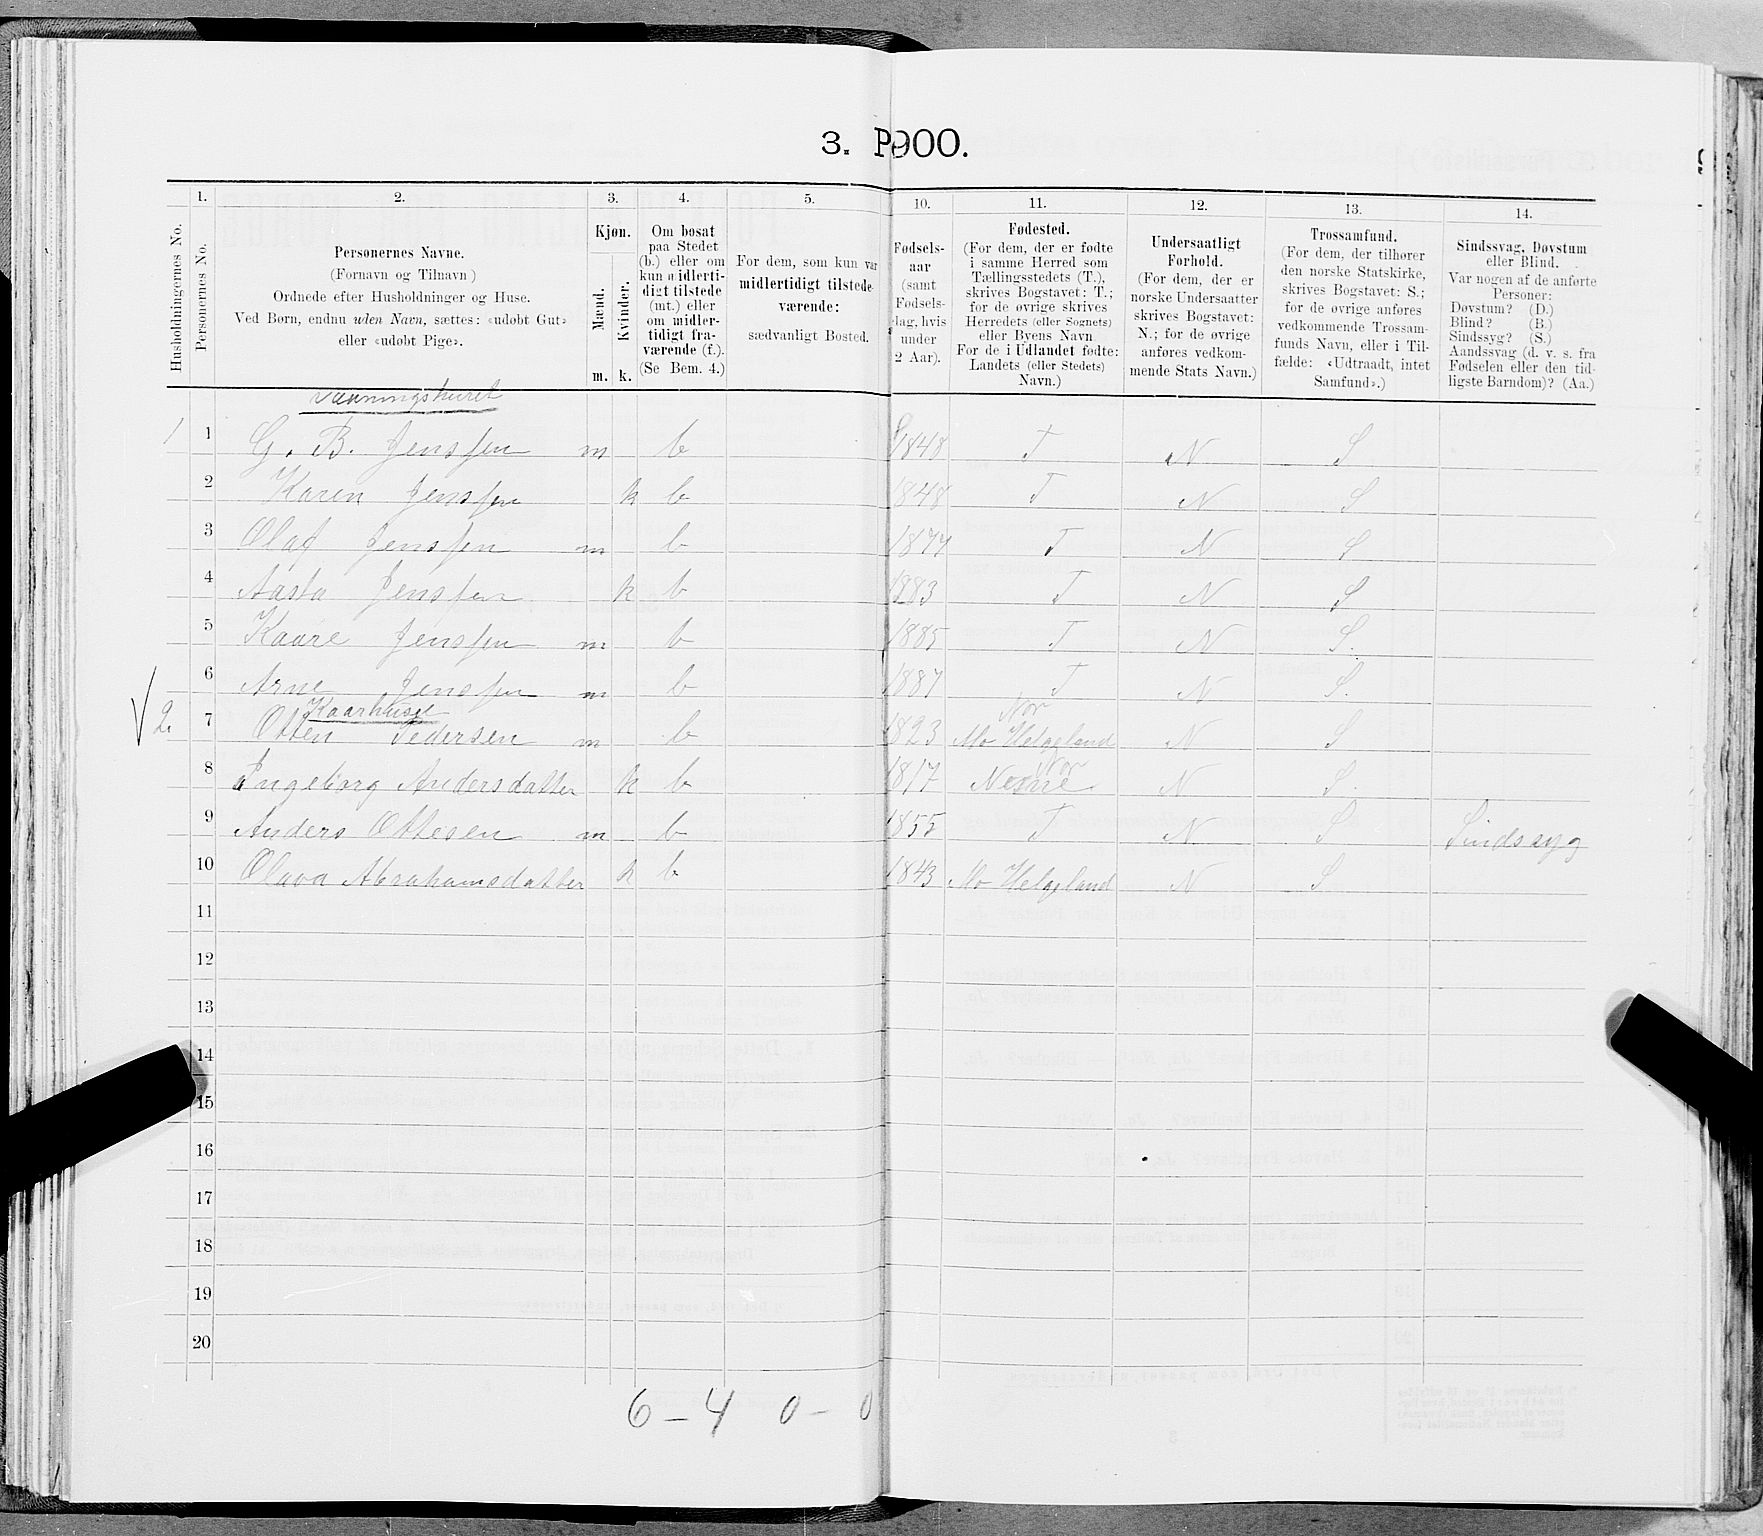 3. P900.
1. 2. 3. 4. 5. 10. 11. 12. 13. 14.
Husholdningernes No.
Personernes No.
Personernes Navne.
(Fornavn og Tilnavn)
Ordnede efter Husholdninger og Huse.
Ved Børn, endnu uden Navn, sættes: «udøbt Gut»
eller «udøbt Pige».
Kjøn.
Mænd.
Kvinder.
m. k.
Om bosat
paa Stedet
(b.) eller om
kun midlerti-
digt tilstede
(mt.) eller
om midler-
tidigt fra-
værende (f.).
(Se Bem. 4.)
For dem, som kun var
midlertidigt tilstede-
værende:
sædvanligt Bosted.
Fødsels-
aar
(samt
Fødsels-
dag, hvis
under
2 Aar).
Fødested.
(For dem, der er fødte
i samme Herred som
Tællingsstedets (T.),
skrives Bogstavet: T.;
for de øvrige skrives
Herredets (eller Sognets)
eller Byens Navn
For de i Udlandet fødte:
Landets (eller Stedets)
Navn.)
Undersaatligt
Forhold.
(For dem, der er
norske Undersaatter
skrives Bogstavet:
N.; for de øvrige
anføres vedkom-
mende Stats Navn.)
Trossamfund.
(For dem, der tilhører
den norske Statskirke,
skrives Bogstavet: S.;
for de øvrige anføres
vedkommende Trossam-
funds Navn, eller i Til-
fælde: «Udtraadt, intet
Samfund».)
Sindssvag, Døvstum
eller Blind.
Var nogen af de anførte
Personer:
Døvstum? (D.)
Blind? (B.)
Sindssyg? (S.)
Aandssvag (d. v. s. fra
Fødselen eller den tid-
ligste Barndom)? (Aa.)
Vaaningshuset
1 1 G. B. Jenssen m b 1848 T N S
2 Karen Jenssen k b 1848 T N S
3 Olaf Jenssen m b 1877 T N S
4 Aasta Jenssen k b 1883 T N S
5 Kaare Jenssen m b 1885 T N S.
6 Arne Jenssen m b 1887 T N S.
Kaarhuset Nor
2. 7 Otten Pedersen m b 1823 Mo Helgeland N S
Nor
8 Ingeborg Andersdatter k b 1817 Nesne N S.
9 Anders Ottesen m b 1855 T N S Sindssyg
10 Olava Abrahamsdatter k b 1843 Mo Helgeland N S
11
12
13
14
15
16
17
18
19
20
6 – 4 0 – 0